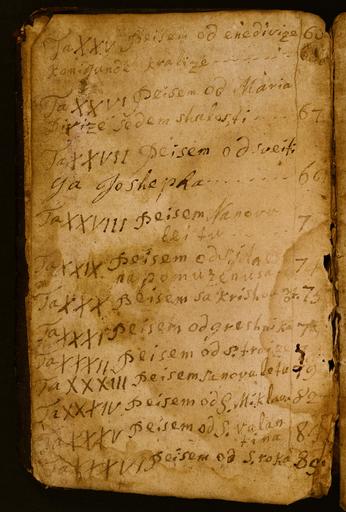 Ta XXV Peisem od ene divize 60
konigunde kralize
Ta XXVI Peisem od Maria
Divize sedem shalosti 67
Ta XXVII Peisem od sveti
ga Joshepha 66
Ta XXVIII Peisem Nanovu 7
leitu
Ta XXIX Peisem od
na pomuzenusa 7
Ta XXX Peisem sa krishov 73
Ta XXXI Peisem od greshnika 78
Ta XXXII Peisem od s. troize
Ta XXXIII Peisem sa novu letu 79
Ta XXXIV Peisem od S. Miklau 82
Ta XXXV Peisem od S. valan
tina
Ta XXXVI Peisem od S. roka 89